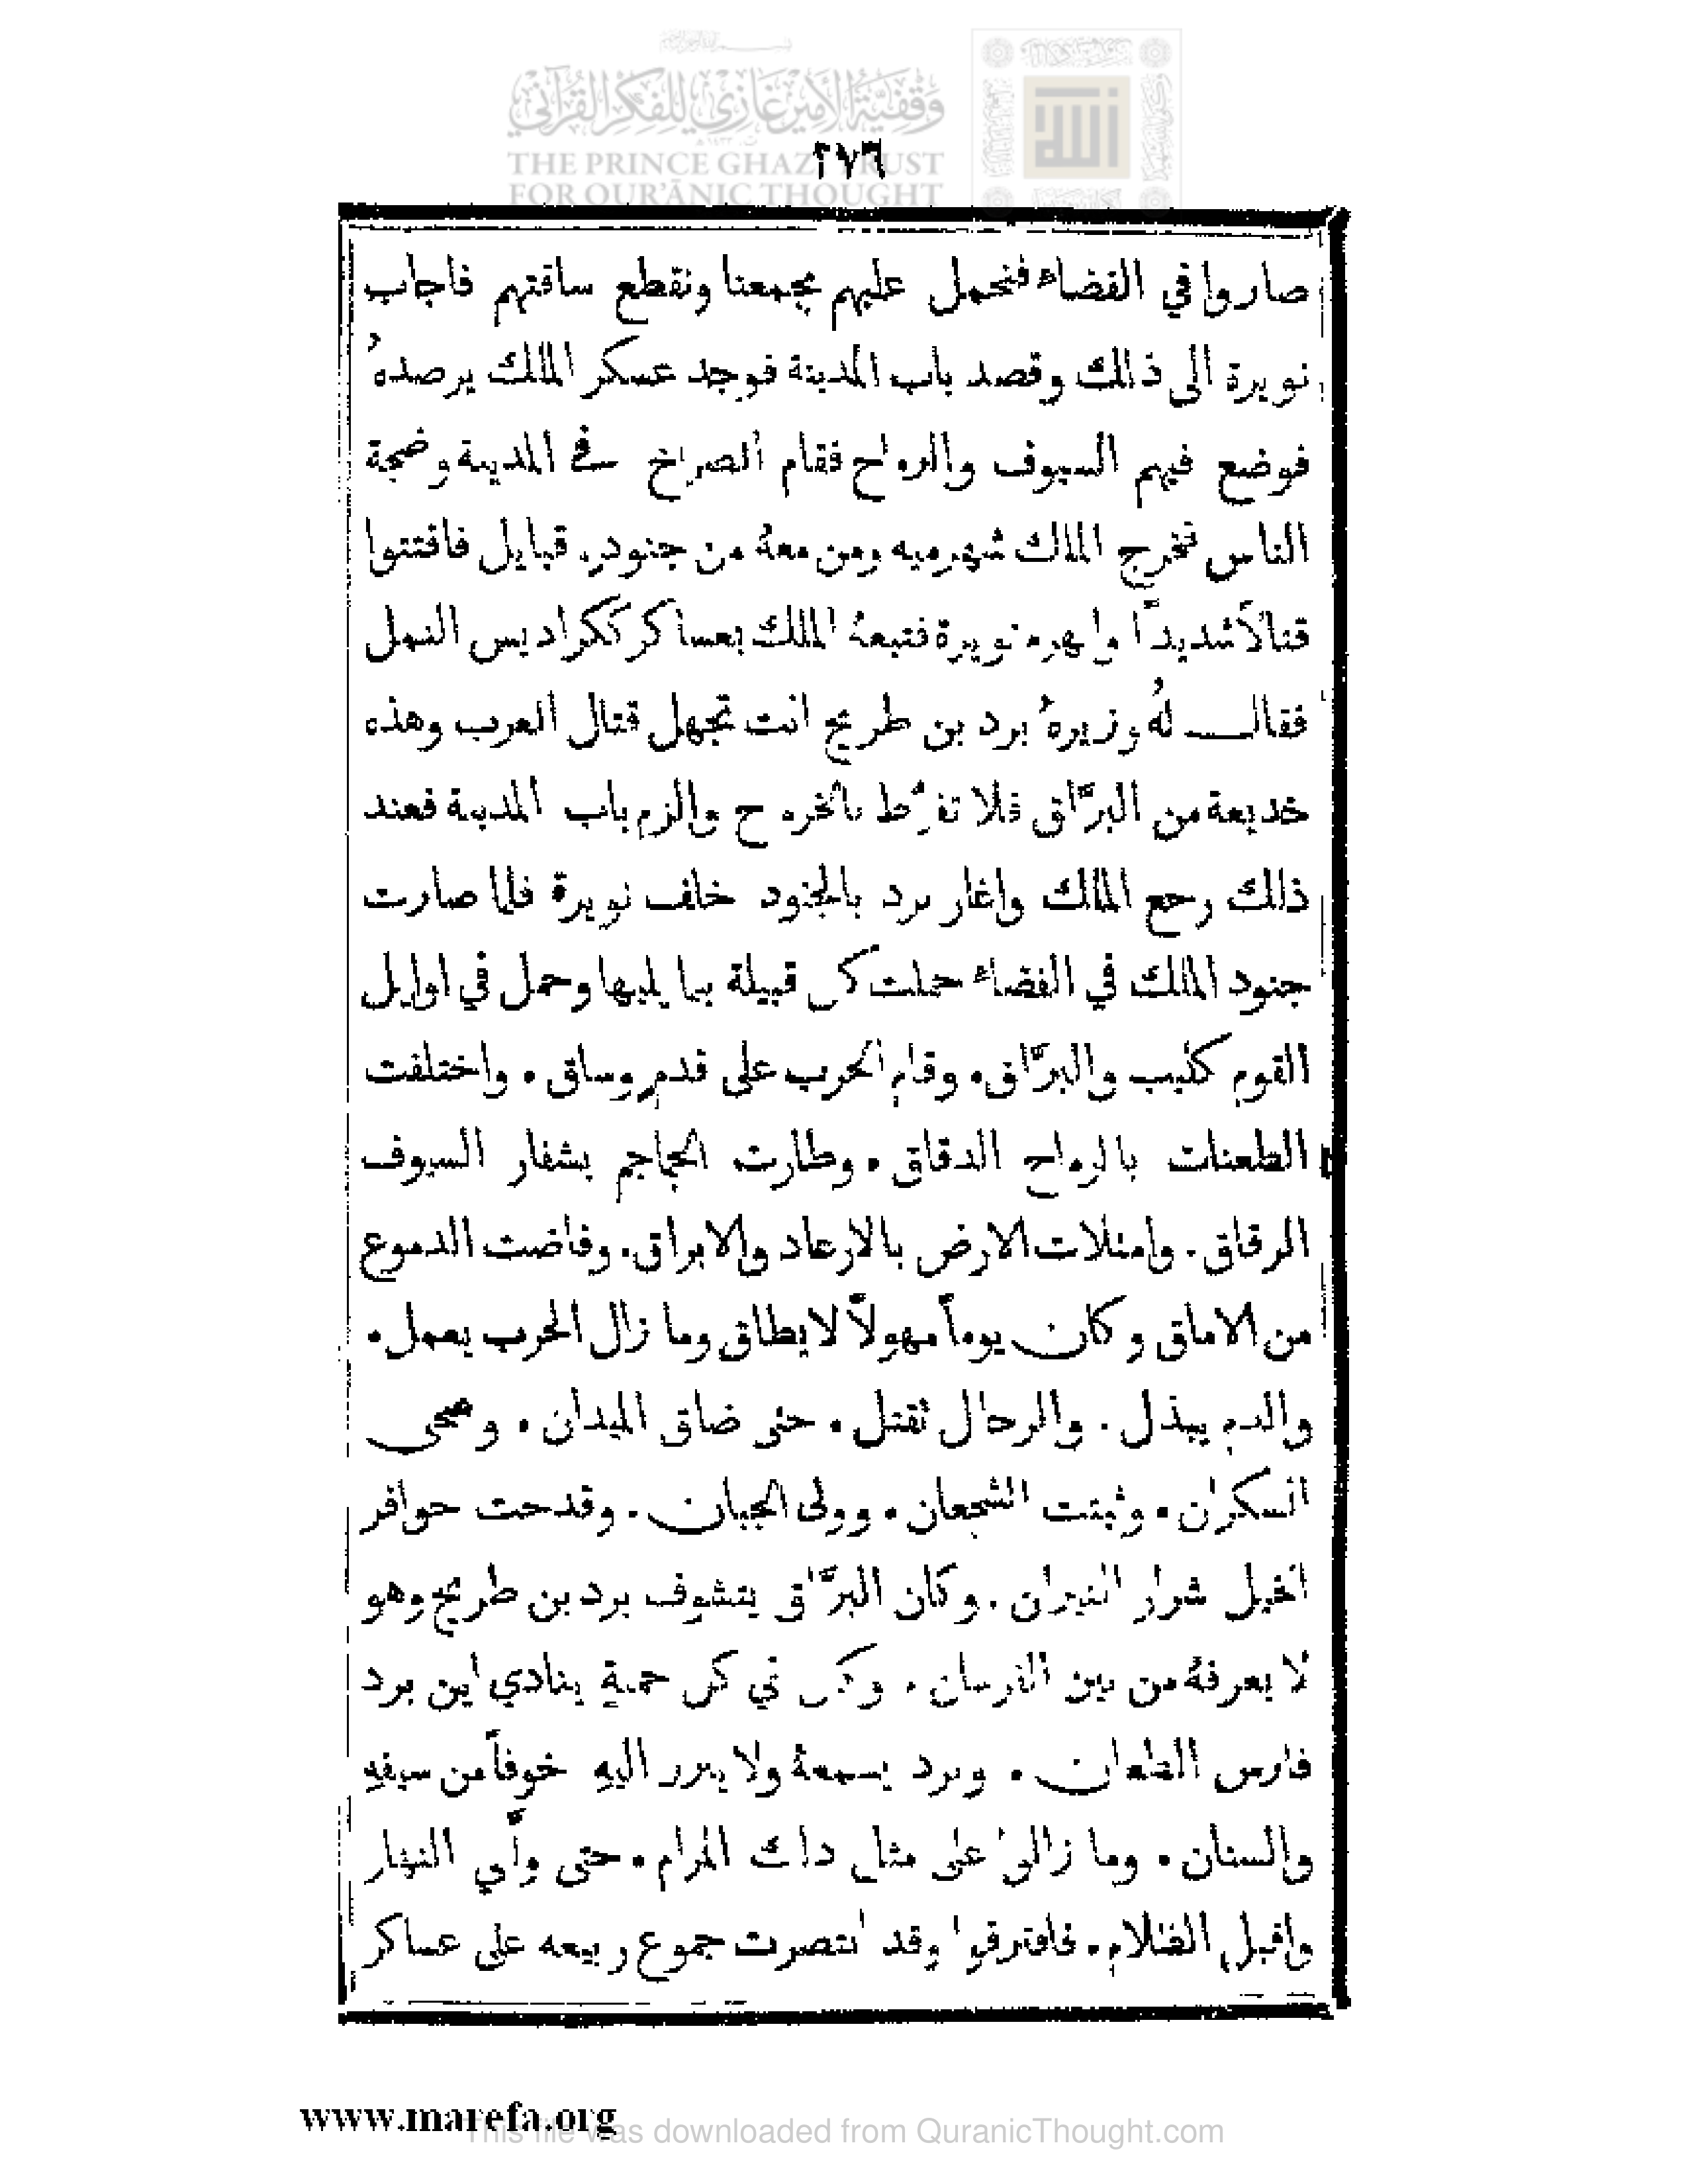 وقفية الأمير غازي للفكر القرآني
THE PRINCE GHAZI TRUST
FOR QUR'ĀNIC THOUGHT
٢٧٦
صاروا في الفضاء فنحمل عليهم بجمعنا ونقطع ساقتهم فاجاب
نويرة الى ذالك وقصد باب المدينة فوجد عسكر الملك يرصدهُ
فوضع فيهم السيوف والرماح فقام الصراخ في المدينة وضجة
الناس نخرج الملك شهرميه ومن معهُ من جنود قبايل فاقتتلوا
قتالاً شديداً وانهزم نويرة فتبعهُ الملك بعساكر ككراديس النمل
فقال لهُ وزيرهُ برد بن طريح انت تجهل قتال العرب وهذه
خديعة من البرَّاق فلا تفرّط بالخروج والزم باب المدينة فعند
ذلك رجع الملك واغار برد بالجنود خلف نويرة فلما صارت
جنود الملك في الفضاء حملت كل قبيلة بما يليها وحمل في اوايل
القوم كليب والبرَّاق. وقام الحرب على قدم وساق. واختلفت
الطعنات بالرماح الدقاق. وطارت الجماجم بشفار السيوف
الرقاق. وامتلات الارض بالارعاد والابراق. وفاضت الدموع
من الاماق وكان يوماً مهولاً لا يطاق وما زال الحرب يعمل.
والدم يبذل. والرجال تقتل. حتى ضاق الميدان. وصحى
السكران. وثبتت الشجعان. وولى الجبان. وقدحت حوافر
الخيل شرار النيران. وكان البرَّاق يتشوف برد بن طريح وهو
لا يعرفهُ من بين الفرسان. وكان في كل حملة ينادي اين برد
فارس الطعان. وبرد يسمعهُ ولا يبرز اليهِ خوفاً من سيفهِ
والسنان. وما زالوا على مثل ذلك المرام. حتى ولَّى النهار
واقبل الظلام. فافترقوا وقد انتصرت جموع ربيعه على عساكر
www.marefa.org
This file was downloaded from QuranicThought.com